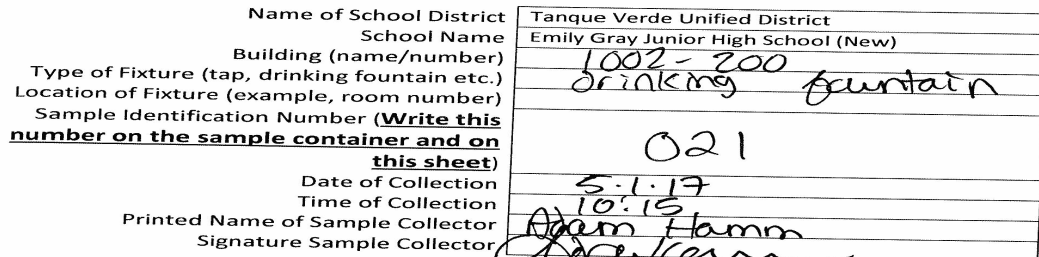 Name of School District Tanque Verde Unified District
School Name Emily Gray Junior High School (New)
Building (name/number) 1002-200
Type of Fixture (tap, drinking fountain etc.) drinking fountain
Location of Fixture (example, room number)
Sample Identification Number (Write this
number on the sample container and on 021
this sheet)
Date of Collection 5.1.17
Time of Collection 10:15
Printed Name of Sample Collector Adam Hamm
Signature Sample Collector